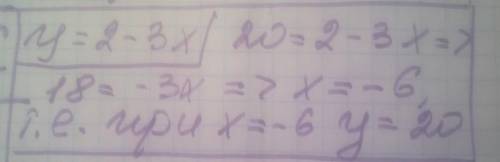 y = 2 - 3x / 20 = 2 - 3x =>
18 = -3x => x = -6,
т.е. при x = -6 y = 20